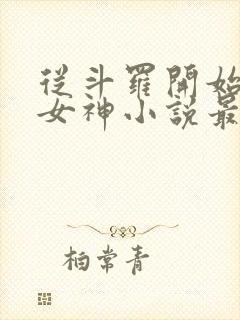 從斗羅開始
女神小說最
柏常青